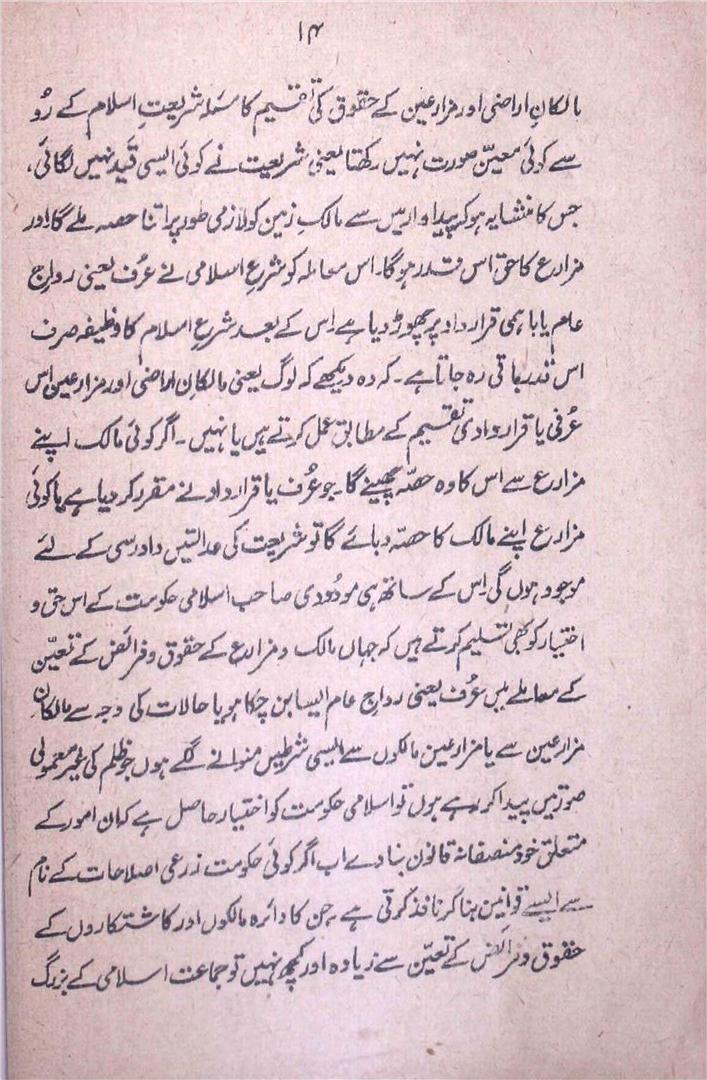 ۱۴
مالکانِ اراضی اور مزارعین کے حقوق کی تقسیم کا مسئلہ شریعتِ اسلام کے رُو
سے کوئی معیّن صورت نہیں رکھتا یعنی شریعت نے کوئی ایسی قید نہیں لگائی،
جس کا منشا یہ ہو کہ پیداوار میں سے مالکِ زمین کو لازمی طور پر اتنا حصہ ملے گا اور
مزارع کا حق اس قدر ہو گا۔ اس معاملہ کو شرعِ اسلامی نے عُرف یعنی رواجِ
عام یا باہمی قرارداد پر چھوڑ دیا ہے اِس کے بعد شرعِ اسلام کا وظیفہ صرف
اس قدر باقی رہ جاتا ہے۔ کہ وہ دیکھے کہ لوگ یعنی مالکانِ اراضی اور مزارعین اس
عُرفی یا قراردادی تقسیم کے مطابق عمل کرتے ہیں یا نہیں۔ اگر کوئی مالک اپنے
مزارع سے اس کا وہ حصّہ چھینے گا۔ جو عُرف یا قرارداد نے مقرر کر دیا ہے یا کوئی
مزارع اپنے مالک کا حصّہ دبائے گا تو شریعت کی عدالتیں دادرسی کے لئے
موجود ہوں گی اِس کے ساتھ ہی مودُودی صاحب اسلامی حکومت کے اس حق و
اختیار کو بھی تسلیم کرتے ہیں کہ جہاں مالک و مزارع کے حقوق و فرائض کے تعیّن
کے معاملے میں عُرف یعنی رواجِ عام ایسا بن چکا ہو یا حالات کی وجہ سے مالکان
مزارعین سے یا مزارعین مالکوں سے ایسی شرطیں منوانے لگے ہوں جو ظلم کی غیر معمولی
صورتیں پیدا کر رہے ہوں تو اسلامی حکومت کو اختیار حاصل ہے کہ ان امور کے
متعلق خود منصفانہ قانون بنا دے اب اگر کوئی حکومت زرعی اصلاحات کے نام
سے ایسے قوانین بنا کر نافذ کرتی ہے جن کا دائرہ مالکوں اور کاشتکاروں کے
حقوق و فرائض کے تعیّن سے زیادہ اور کچھ نہیں تو جماعت اسلامی کے بزرگ